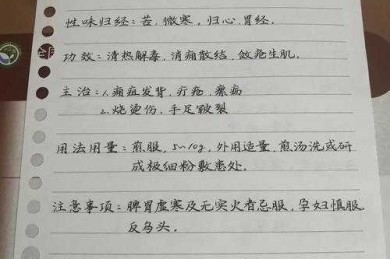 性味归经：苦，微寒，归心，胃经.
功效：清热解毒，消痈散结，敛疮生肌.
主治：1.痈疽发背，疔疮，瘰疬
2.烧烫伤，手足皲裂
用法用量：煎服，5~10g，外用适量，煎汤洗或研
成极细粉敷患处.
注意事项：脾胃虚寒及无实火者忌服，孕妇慎服
反乌头.